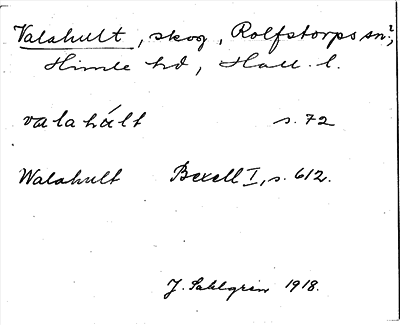 Valahult, skog, Rolfstorps sn?,
Himle hd, Hall. l.
valahált s. 72
Walahult Bexell I, s. 612.
J. Sahlgren 1918.